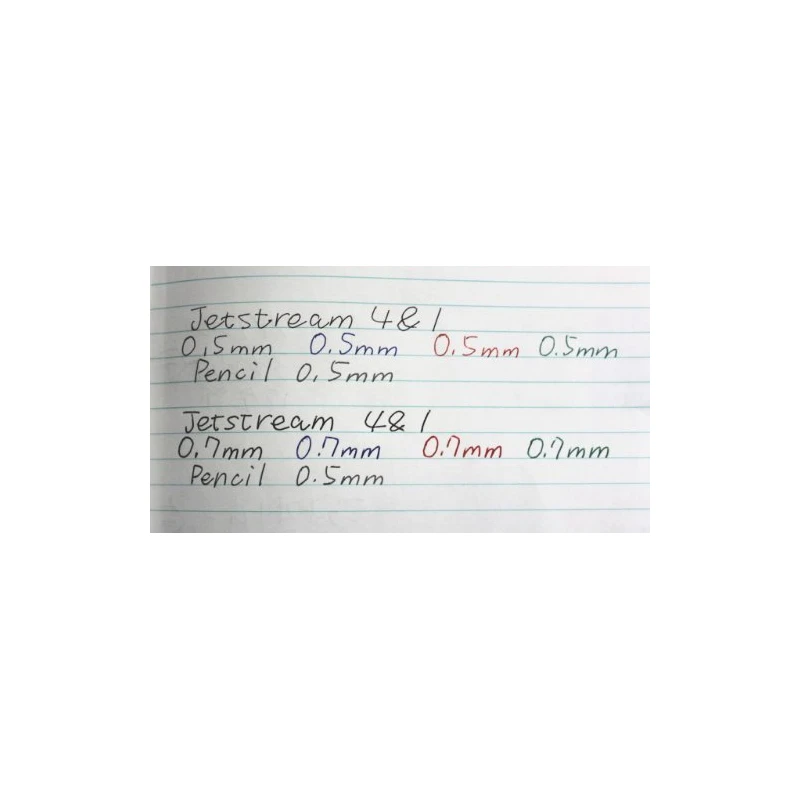 Jetstream 4&1
0.5mm 0.5mm 0.5mm 0.5mm
Pencil 0.5mm
Jetstream 4&1
0.7mm 0.7mm 0.7mm 0.7mm
Pencil 0.5mm